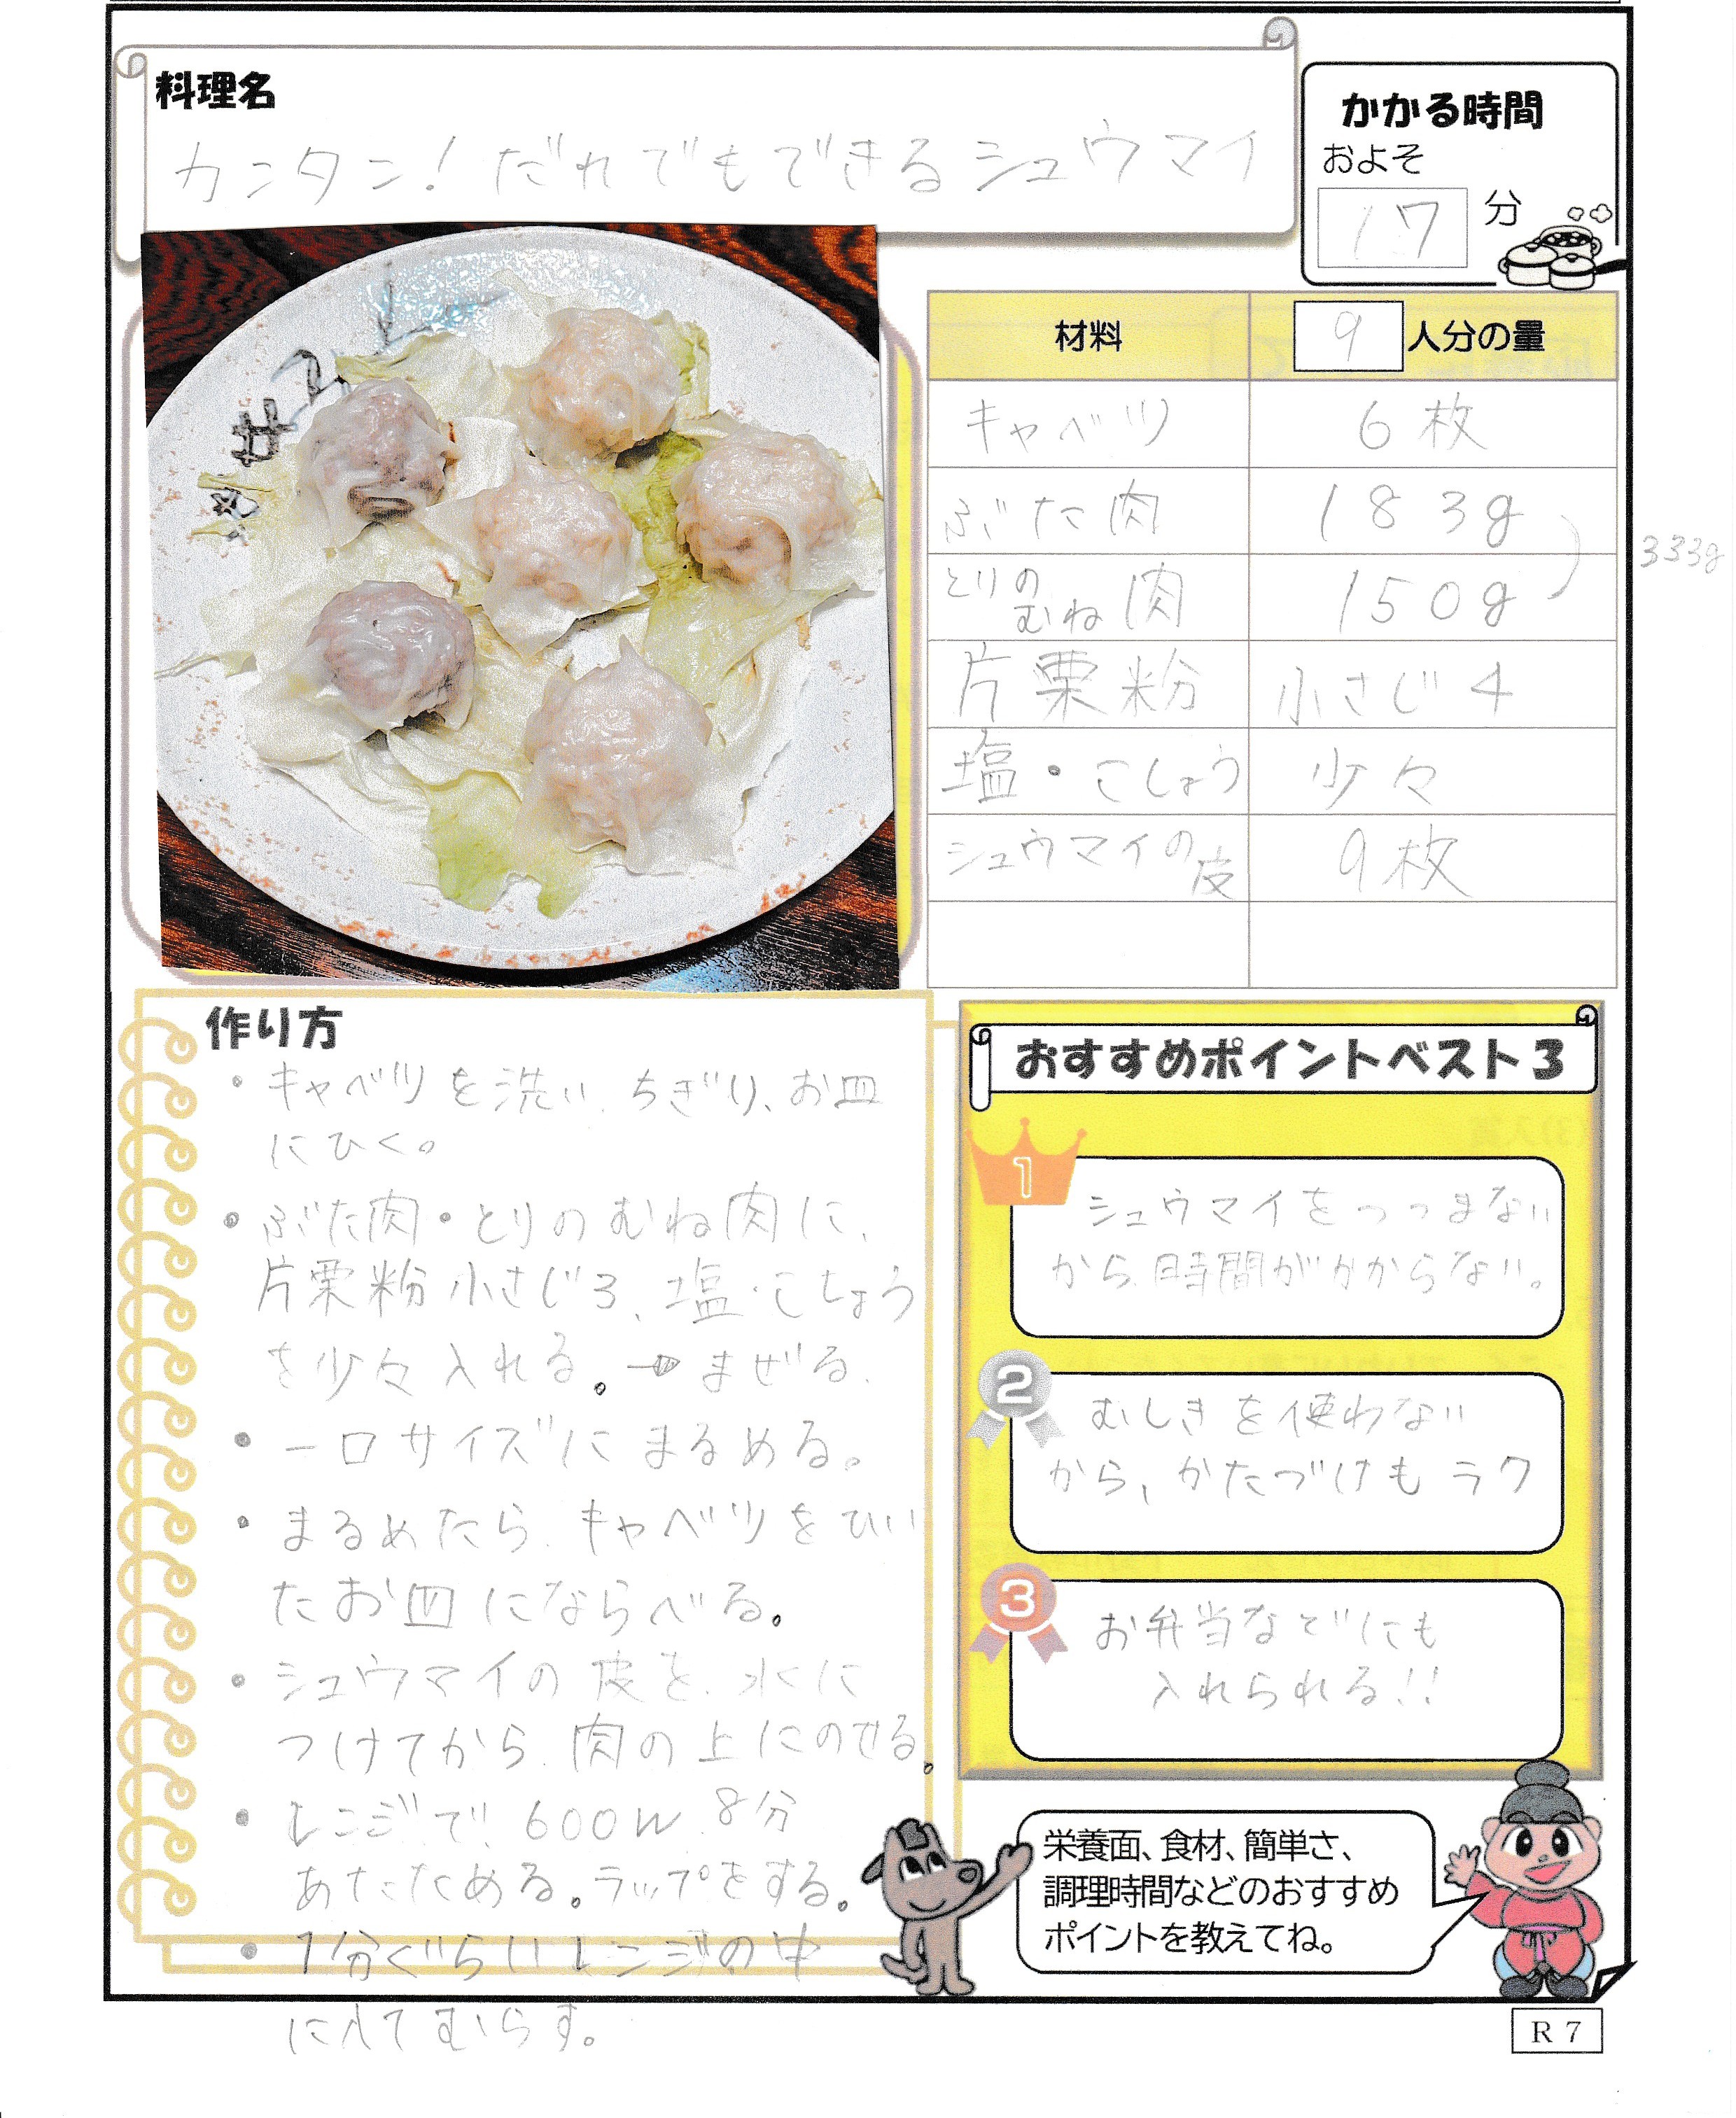 料理名
カンタン！だれでもできるシュウマイ
かかる時間
およそ
17分
材料 9人分の量
キャベツ 6枚
ぶた肉 183g
とりのむね肉 150g
333g
片栗粉 小さじ4
塩・こしょう 少々
シュウマイの皮 9枚
作り方
・キャベツを洗い、ちぎり、お皿
にひく。
・ぶた肉・とりのむね肉に、
片栗粉小さじ3、塩・こしょう
を少々入れる。→まぜる、
・一口サイズにまるめる。
・まるめたら、キャベツをひい
たお皿にならべる。
・シュウマイの皮を、水に
つけてから、肉の上にのせる。
・レンジで、600W、8分
あたためる。ラップをする。
・1分ぐらいレンジの中
に入れてむらす。
おすすめポイントベスト3
1
シュウマイをつつまない
から、時間がかからない。
2
むしきを使わない
から、かたづけもラク
3
お弁当などにも
入れられる!!
栄養面、食材、簡単さ、
調理時間などのおすすめ
ポイントを教えてね。
R7